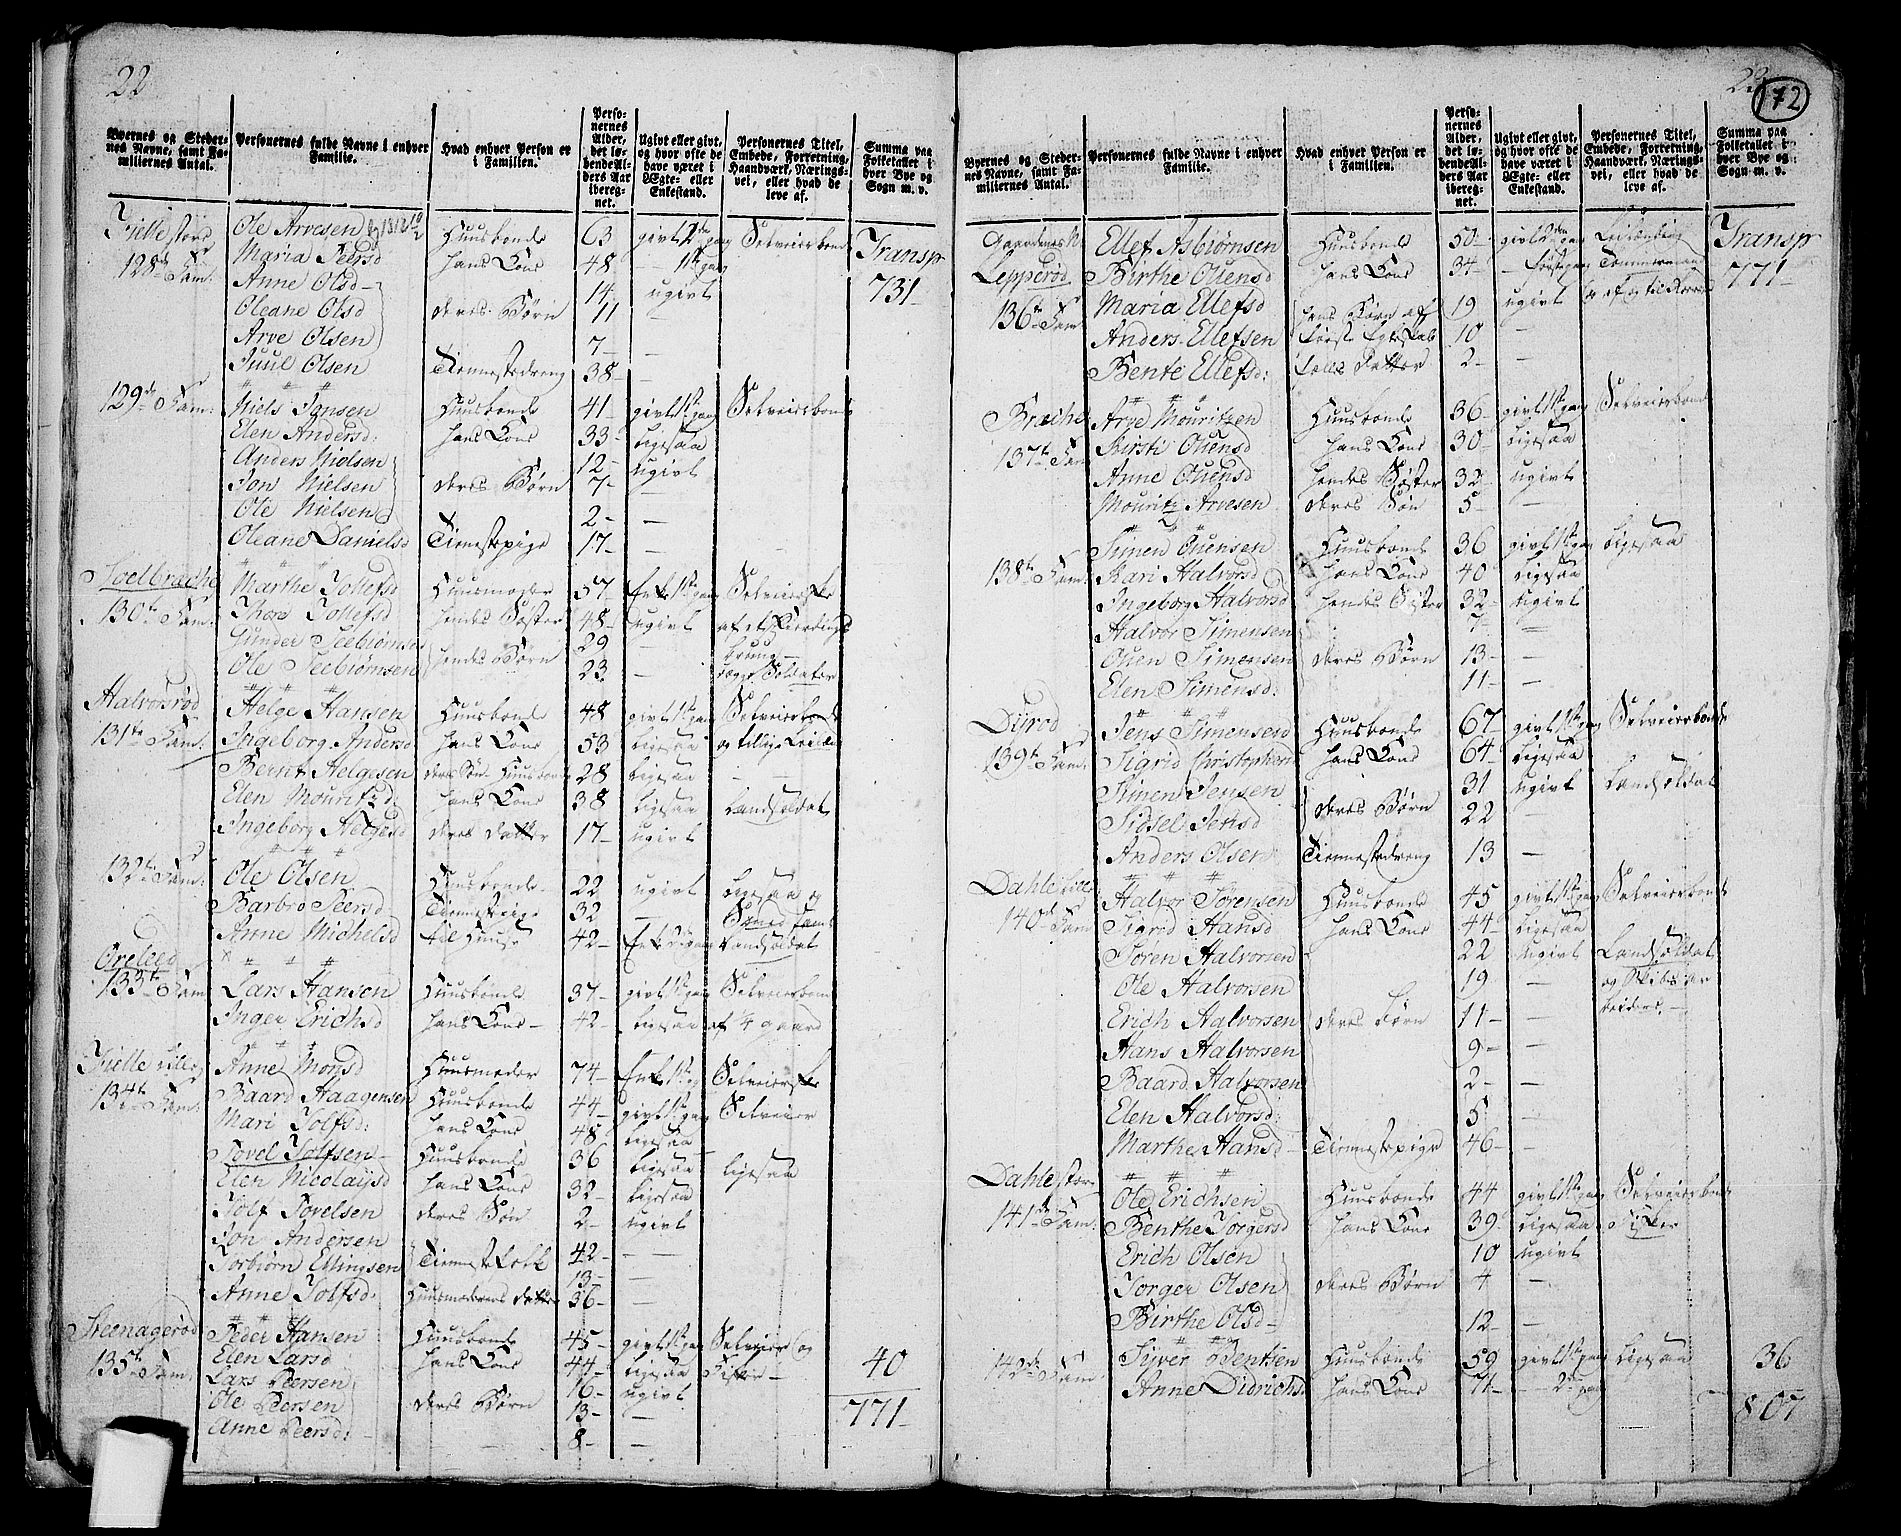 22
Byernes og Steder-
nes Navne, samt Fa-
miliernes Antal.
Personernes fulde Navne i enhver
Familie.
Hvad enhver Person er
i Familien.
Perso-
nernes
Alder,
det lø-
bende Al-
ders Aar
ibereg-
net.
Ugivt eller givt,
og hvor ofte de
have været i
Ægte- eller
Enkestand.
Personernes Titel,
Embede, Forretning,
Haandværk, Nærings-
vei, eller hvad de
leve af.
Summa paa
Folketallet i
hver Bye og
Sogn m. v.
Transp
731
Ole Arvesen Huusbonde 63 givt 2den gang Selveierbonde
128de Fam. Maria Peersd hans Kone 48 1ste gang
Anne Olsd 14 ugivt
Oleane Olsd deres Børn 11 —
Arve Olsen 7 —
Juul Olsen Tiennestedreng 38 —
129de Fam: Niels Jansen Huusbonde 41 givt 1ste gang Selveierbonde
Elen Andersd: hans Kone 33 Ligesaa
Anders Nielsen 12 ugivt
Jon Nielsen deres Børn 7 —
Ole Nielsen 2 —
Oleane Danielsd Tiennestepige 17 —
Marthe Tollefsd Huusmoder 57 Enke 1ste gang Selveierske
130te Fam. Thore Tollefsd hendes Søster 48 ugivt
Gunder Seebiørnsen 29
Ole Seebiørnsen hendes Børn 23 — Soldater
Halvorsrød Helge Hansen Huusbonde 48 givt 1ste gang Selveierbonde
131te Fam. Ingeborg Andersd hans Kone 53 Ligesaa
Bernt Helgesen deres Søn Huusbonde 28 Ligesaa
Elen Mouritsd hans Kone 38 Ligesaa Landsoldat
Ingeborg Helgesd deres Datter 17 ugivt
132te Fam: Ole Olsen Huusbonde 22 ugivt Ligesaa og
Barbro Peersd Tiennestepige 32 —
Anne Michelsd til Huuse 42 Landsoldat
133te Fam Lars Hansen Huusbonde 37 givt 1ste gang Selveierbonde
Inger Erichsd hans Kone 42 Ligesaa af ¼ gaard
Anne Monsd Huusmoder 74 Enke 1ste g Selveierske
134te Fam: Baard Haagensen Huusbonde 44 givt 1ste gang Selveier
Mari Tolfsd: hans Kone 48 Ligesaa
Tovel Tolfsen Huusbonde 36 Ligesaa Ligesaa
Elen Nicolaysd hans Kone 32 Ligesaa
Tolf Tovelsen deres Søn 2 ugivt
Jon Andersen 42 —
Torbiørn Ellingsen Tiennestefolk 13 —
Anne Tolfsd. Huusmoderens Datter 36 —
Steenagerød Peder Hansen Huusbonde 45 givt 1ste gang Selveier og
135te Fam. Elen Larsd hans Kone 44 Ligesaa Fisker
Lars Peersen 16 ugivt
Ole Peersen deres Børn 13 —
Anne Peersd: 8 —
40
771
72
Byernes og Steder-
nes Navne, samt Fa-
miliernes Antal.
Personernes fulde Navne i enhver
Familie.
Hvad enhver Person er
i Familien.
Perso-
nernes
Alder,
det lø-
bende Al-
ders Aar
ibereg-
net.
Ugivt eller givt,
og hvor ofte de
have været i
Ægte- eller
Enkestand.
Personernes Titel,
Embede, Forretning,
Haandværk, Nærings-
vei, eller hvad de
leve af.
Summa paa
Folketallet i
hver Bye og
Sogn m. v.
Transp
771
Gaardenes N. Ellef Asbiørnsen Huusbonde 50 givt 2den gang Leilænding
Lepperød Birthe Ouensd hans Kone 34 — første gang Tømmermand
136te Fam Maria Ellefsd hans Børn af 19 ugivt
Anders Ellefsen første Egteskab 10 —
Bente Ellefsd: fælles Datter 2 —
Bræche Arve Mouritzen Huusbonde 36 givt 1ste gang Selveierbonde
137te Fam Kirsti Ouensd hans Kone 30 Ligesaa
Anne Ouensd hendes Søster 32 ugivt
Mouritz Arvesen deres Søn 5 —
Simen Ouensen Huusbonde 36 givt 1ste gang Ligesaa
138te Fam: Kari Halvorsd hans Kone 40 Ligesaa
Ingeborg Halvorsd hendes Søster 32 ugivt
Halvor Simensen 7 —
Ouen Simensen deres Børn 13 —
Elen Simensd: 11 —
Dürød Jens Simensen Huusbonde 67 givt 1ste gang Selveierbonde
139te Fam: Sigrid Christophersd hans Kone 64 Ligesaa
Simen Jensen 31 ugivt Landsoldat
Sidsel Jensd deres Børn 22 —
Anders Olsen Tiennestedreng 13 —
Dahle lille Halvor Sørensen Huusbonde 45 givt 1ste gang Selveierbonde
140de Fam Sigrid Hansd hans Kone 44 Ligesaa
Søren Halvorsen 22 ugivt Landsoldat
Ole Halvorsen 19 — og Skibsar
Erich Halvorsen deres Børn 11 — beidere
Hans Halvorsen 9 —
Baard Halvorsen 2 —
Elen Halvorsd: 5 —
Marthe Hansd Tiennestepige 46 —
Dahle store Ole Erichsen Huusbonde 44 givt 1ste gang Selveierbonde
141de Fam. Benthe Torgersd hans Kone 39 Ligesaa Fisker
Erich Olsen 10 ugivt
Torger Olsen deres Børn 4 —
Birthe Olsd 12 —
142de Fam. Syver Bentsen Huusbonde 59 givt 1ste gang Ligesaa
Anne Didrichsd hans Kone 71 — 2den gang
36
807